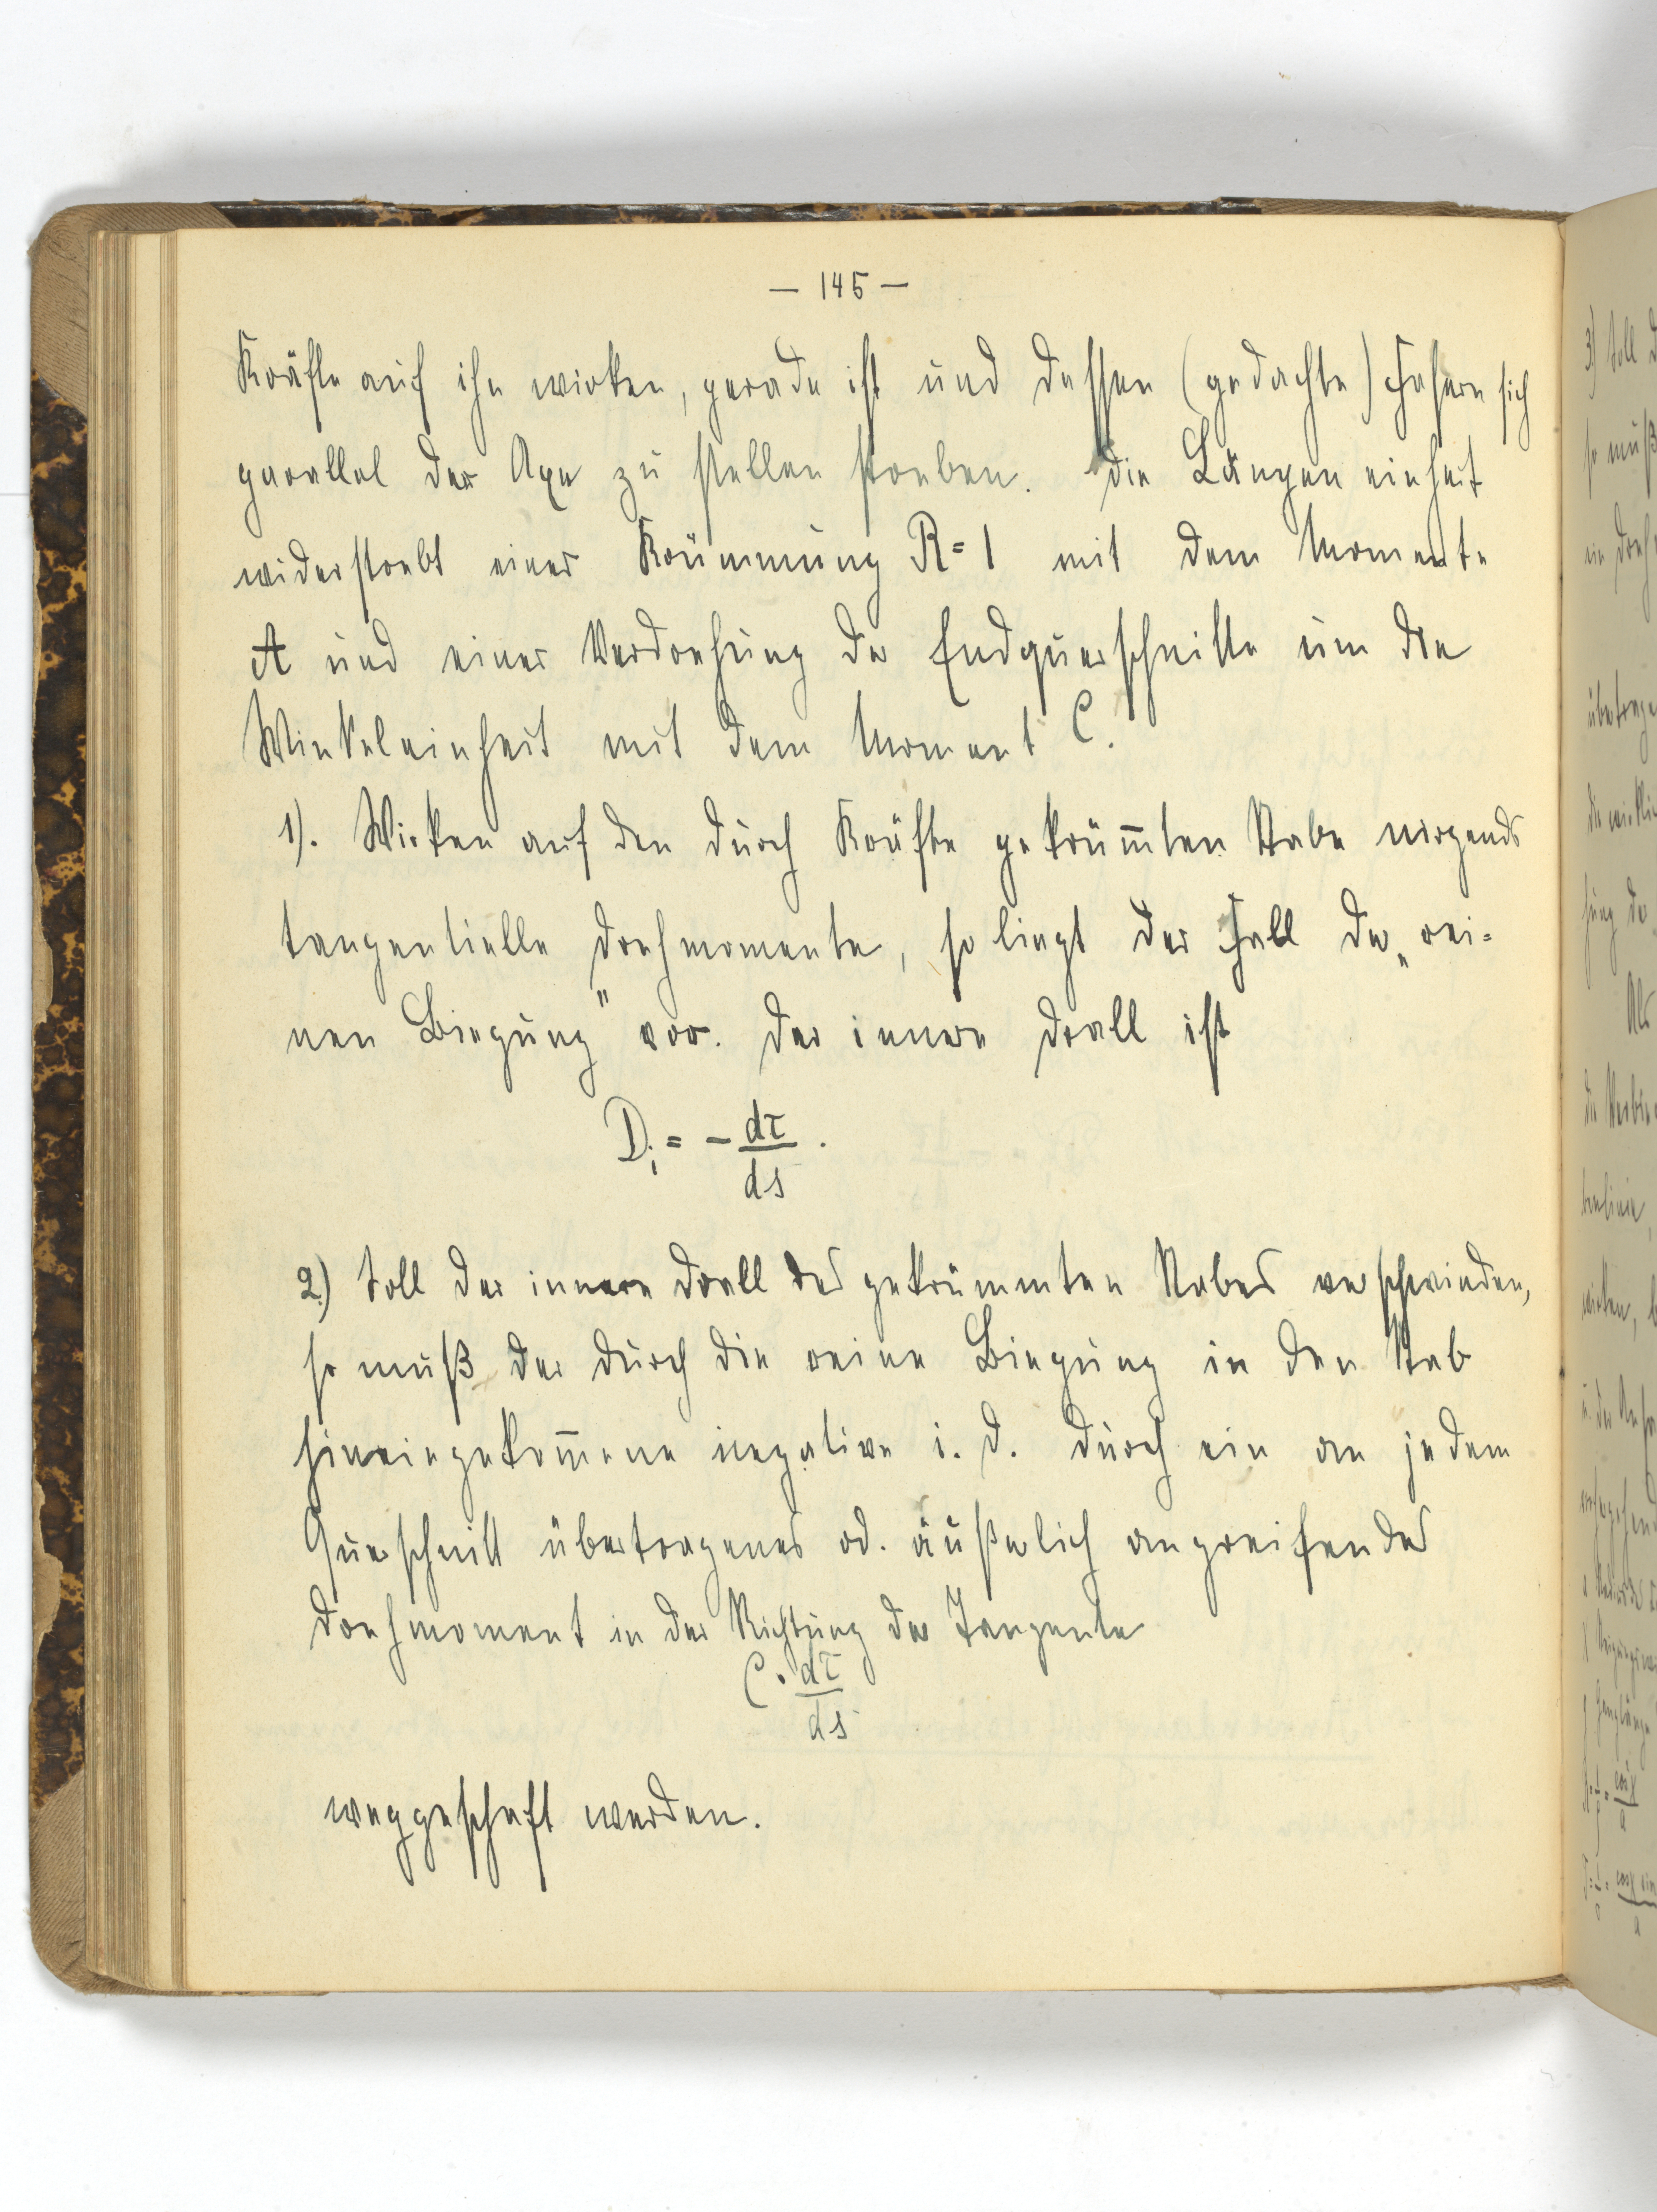 — 145 —
Kräfte auf ihn wirken, gerade ist und dessen (gedachte) Fasern sich
parallel der Axe zu stellen streben. Die Längeneinheit
widerstrebt einer Krümmung R = 1 mit dem Momente
A und einer Verdrehung der Endquerschnitte um die
Winkeleinheit mit dem Moment C.
1). Wirken auf den durch Kräfte gekrüm̅ten Stabe nirgends
tangentielle Drehmomente, so liegt der Fall der „rei-
nen Biegung" vor. Der innere Drall ist
Di = - dτ/ds.
2.) Soll der innere Drall des gekrümmten Stabes verschwinden,
so muß der durch die reine Biegung in den Stab
hineingekom̅ene negative i. D. durch ein an jedem
Querschnitt übertragenes od. äußerlich angreifendes
Drehmoment in der Richtung der Tangente
C · dτ/ds
weggeschaft werden.
3) Soll
so muß
ein Dreh
Als